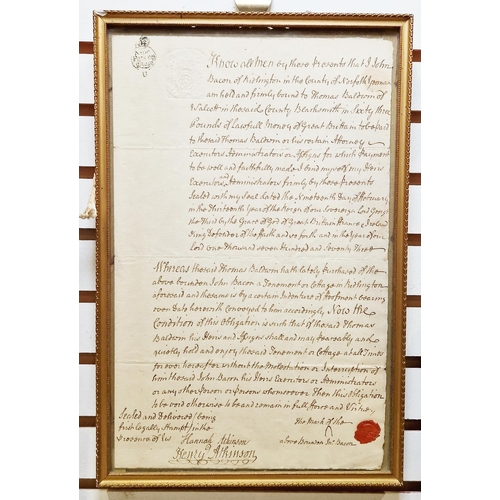 Know all men by these Presents that I John
Bacon of Ridlington in the County of Norfolk Yeoman
am held and firmly bound to Thomas Baldwin of
Walcott in the said County Blacksmith in Sixty three
Pounds of Lawfull Money of Great Britain to be paid
to the said Thomas Baldwin or his certain Attorney
Executors Administrators or Assigns for which Payment
to be well and faithfully made I bind myself my Heirs
Executors and Administrators firmly by these Presents
Sealed with my Seal dated the Nineteenth Day of February
in the Thirteenth Year of the Reign of our Sovereign Lord George
the Third by the Grace of God of Great Britain France & Ireland
King Defender of the Faith and so forth and in the Year of our
Lord One Thousand seven Hundred and Seventy Three
Whereas the said Thomas Baldwin hath lately Purchased of the
above bounden John Bacon a Tenement or Cottage in Ridlington
aforesaid and the same is by a certain Indenture of Feofment bearing
even Date herewith Conveyed to him accordingly Now the
Condition of this Obligation is such that if the said Thomas
Baldwin his Heirs and Assigns shall and may peaceably and
quietly hold and enjoy the said Tenement or Cottage at all Times
for ever hereafter without the Molestation or Interruption of
him the said John Bacon his Heirs Executors or Administrators
or any other Person or Persons whomsoever Then this Obligation
to be void otherwise to be and remain in full Force and Virtue
Sealed and Delivered (being
first legally Stampt) in the
Presence of us
The Mark of the
above Bounden Jno. Bacon
Hannah Atkinson
Henry Atkinson